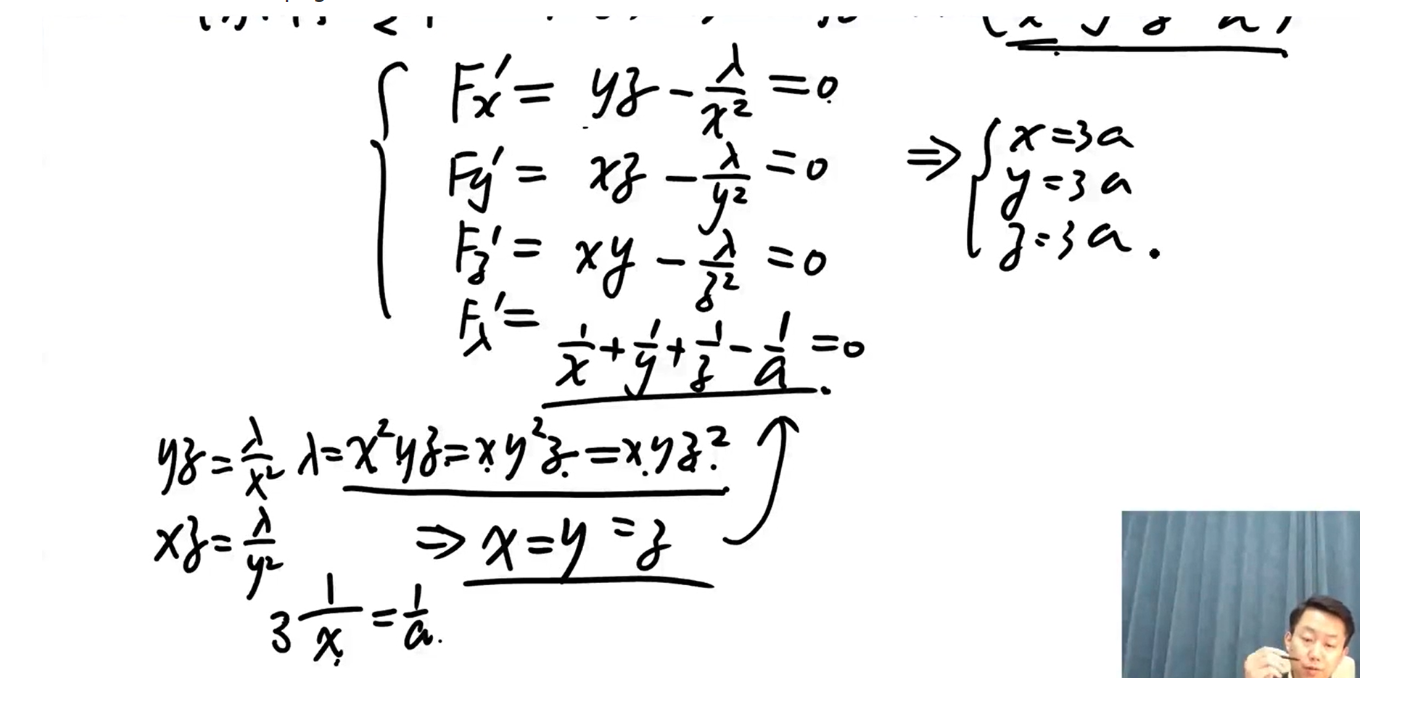 F'x = yz - λ/x² = 0
F'y = xz - λ/y² = 0
F'z = xy - λ/z² = 0
F'λ = 1/x + 1/y + 1/z - 1/a = 0
⇒ { x = 3a
y = 3a
z = 3a.
yz = λ/x² λ = x²yz = xy²z = xyz²
xz = λ/y² ⇒ x = y = z
3 1/x = 1/a.